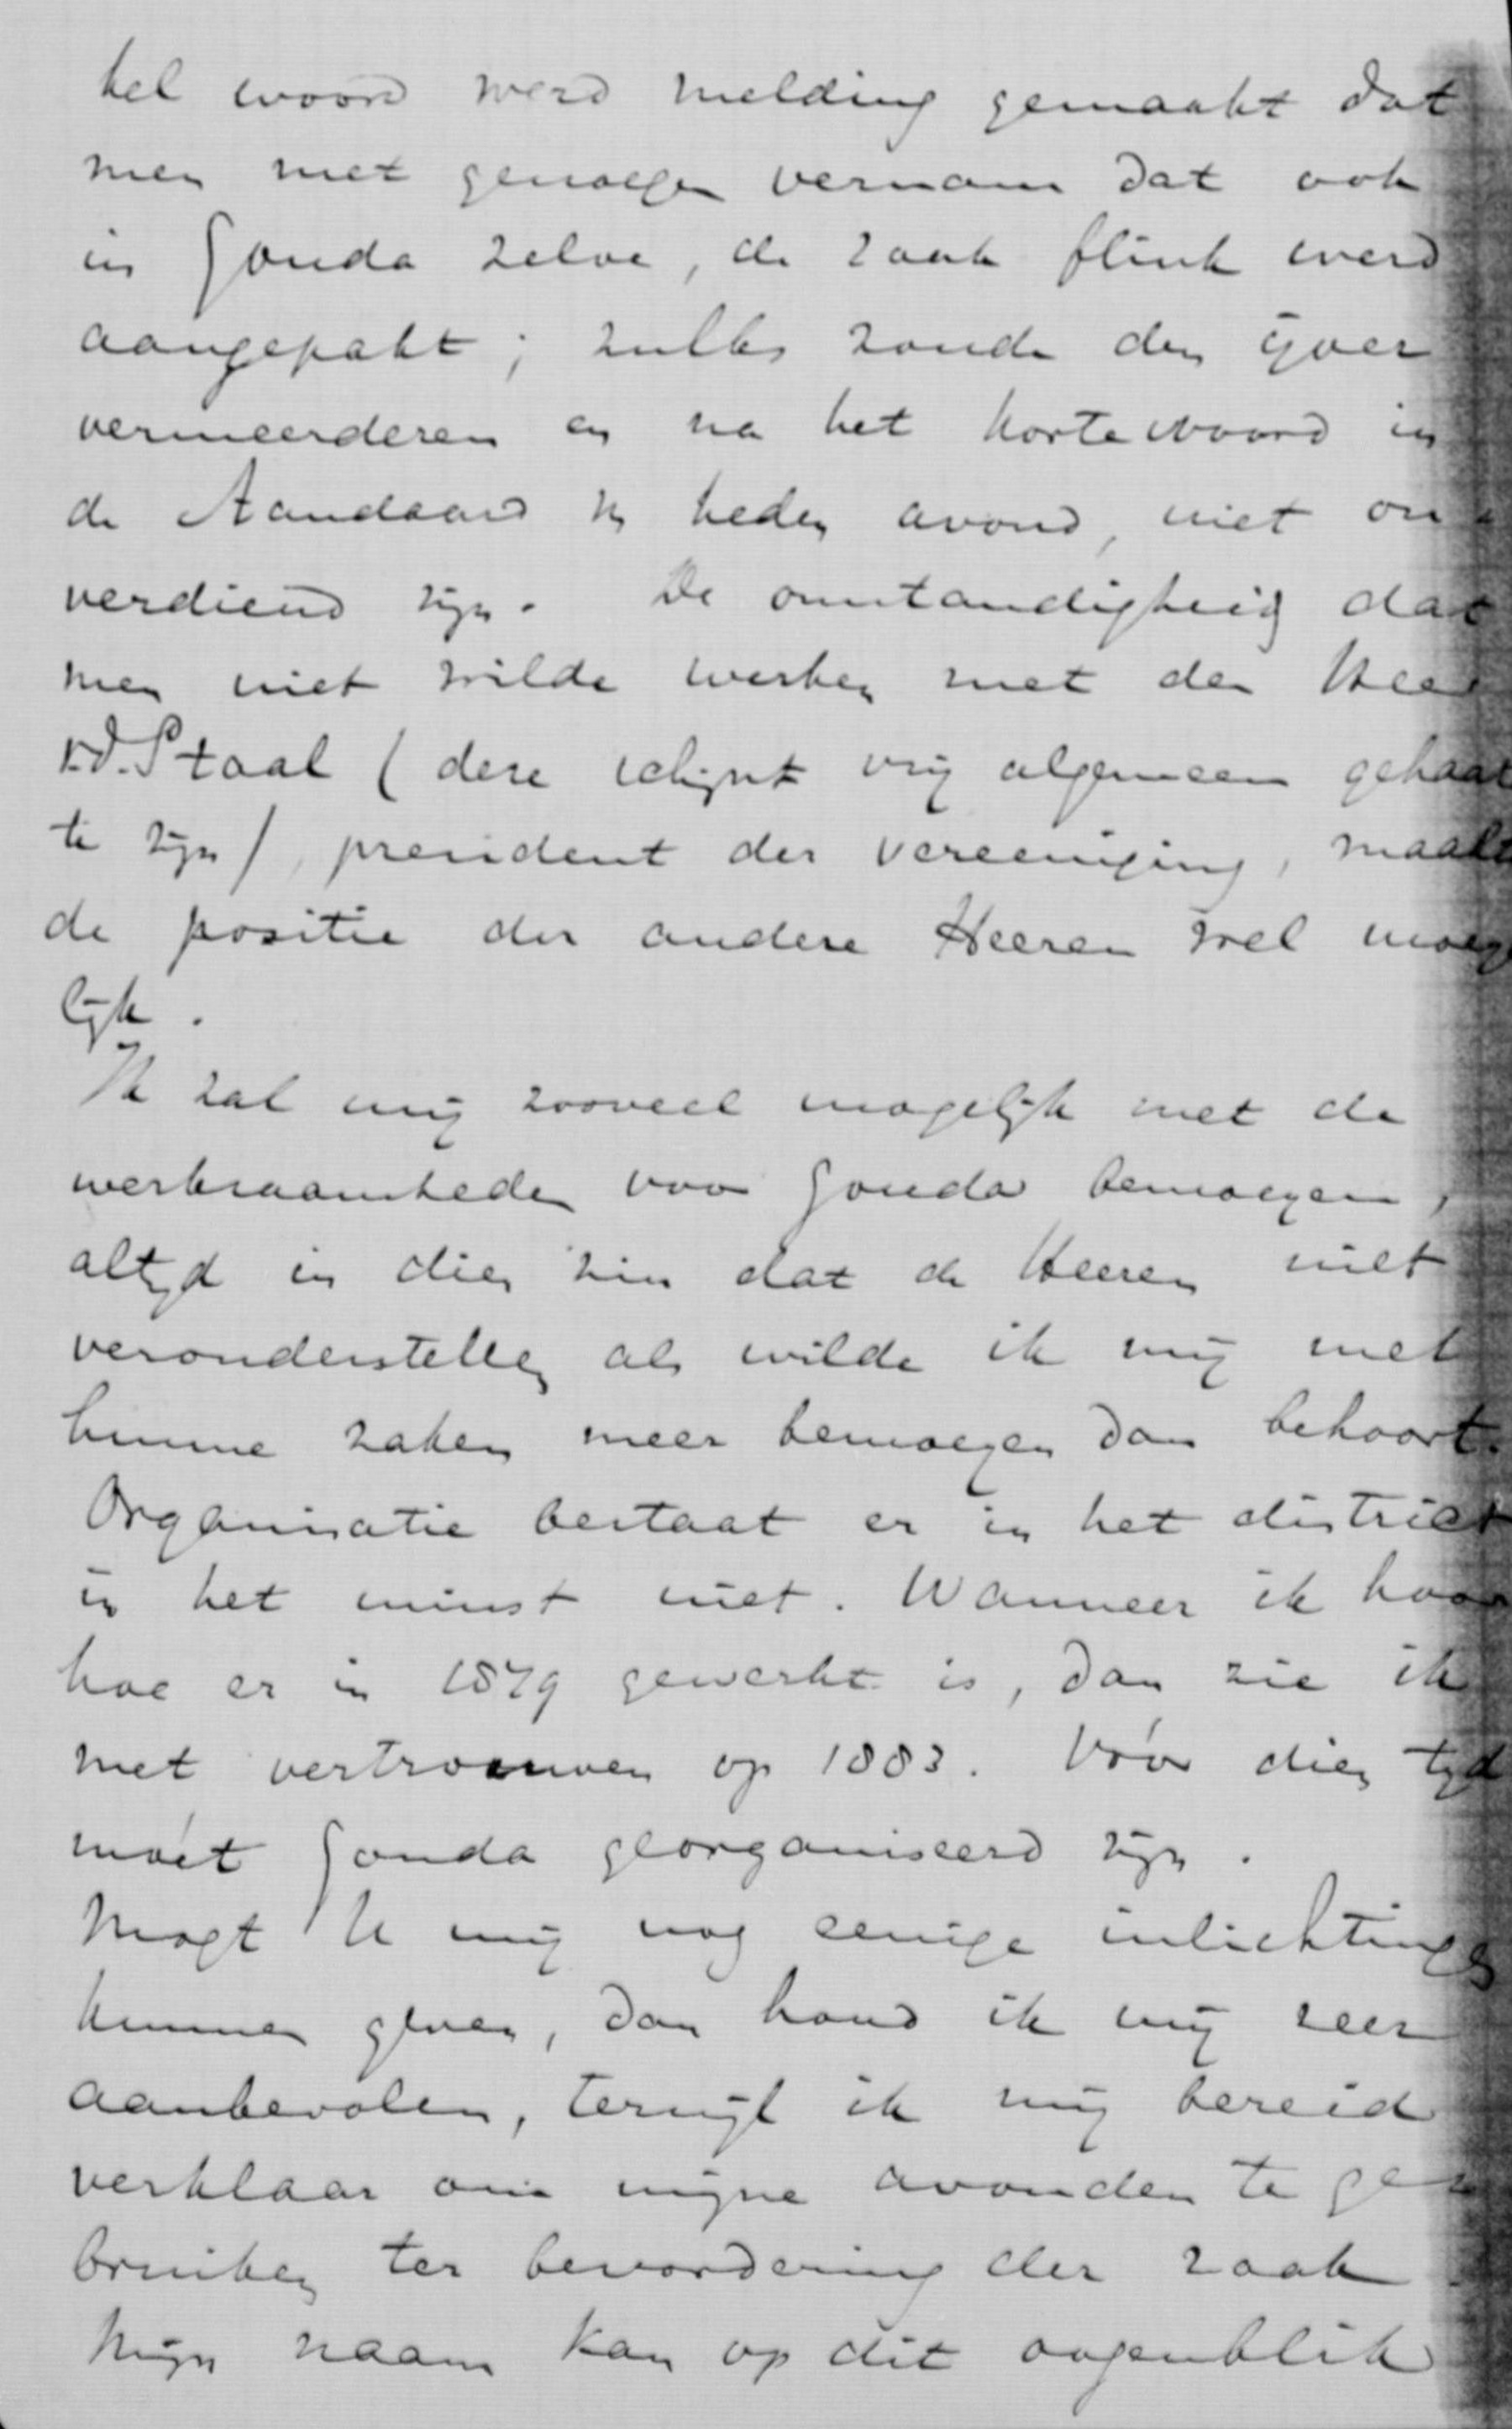 kel woord werd melding gemaakt dat
men met genoegen vernam dat ook
in Gouda zelve, de zaak flink werd
aangepakt; zulks zoude den ijver
vermeerderen en na het korte woord in
de Standaard v. heden avond, niet on
verdiend zijn. De omstandigheid dat
men niet wilde werken met den Heer
v.d. Staal (deze schijnt vrij algemeen gehaat
te zijn), president der vereeniging, maakt
de positie der andere Heeren wel moeije
lijk.
Ik zal mij zooveel mogelijk met de
werkzaamheden voor Gouda bemoeyen,
altijd in dien zin dat de Heeren niet
veronderstellen als wilde ik mij met
hunne zaken meer bemoeyen dan behoort.
Organisatie bestaat er in het district
in het minst niet. Wanneer ik hoor
hoe er in 1879 gewerkt is, dan zie ik
met vertrouwen op 1883. Vóór dien tijd
móet Gouda georganiseerd zijn.
Mogt U mij nog eenige inlichtingen
kunnen geven, dan houd ik mij zeer
aanbevolen, terwijl ik mij bereid
verklaar om mijne avonden te ge
bruiken ter bevordering der zaak
Mijn naam kan op dit oogenblik